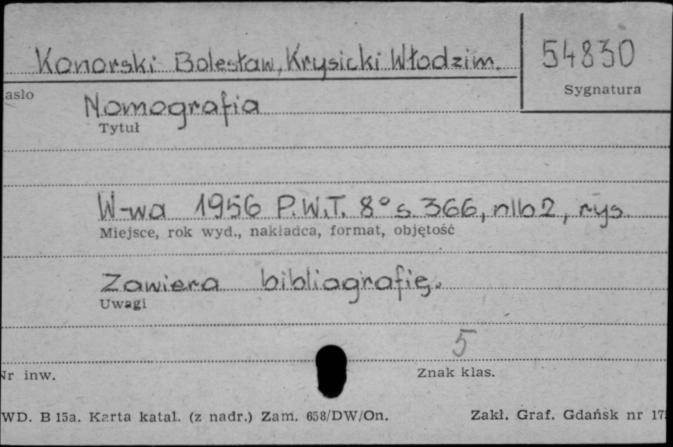 Konorski Bolesław, Krysicki Włodzim.
54830
Sygnatura
asło
Nomografia
Tytuł
W-wa 1956 P.W.T. 8° s. 366, nlb 2, rys.
Miejsce, rok wyd., nakładca, format, objętość
Zawiera bibliografię.
Uwagi
5
Nr inw.
Znak klas.
WD. B 15a. Karta katal. (z nadr.) Zam. 658/DW/On.
Zakł. Graf. Gdańsk nr 17